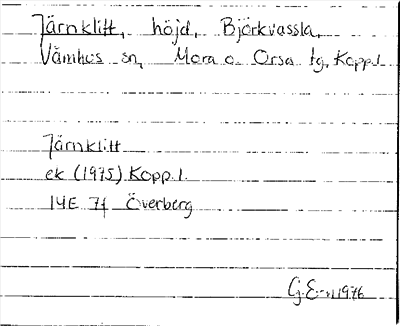 Järnklitt, höjd, Björkvassla,
Våmhus sn, Mora o. Orsa tg, Kopp. l.
Järnklitt
ek (1975) Kopp. l.
14E 7f Överberg
G. E-n 1976